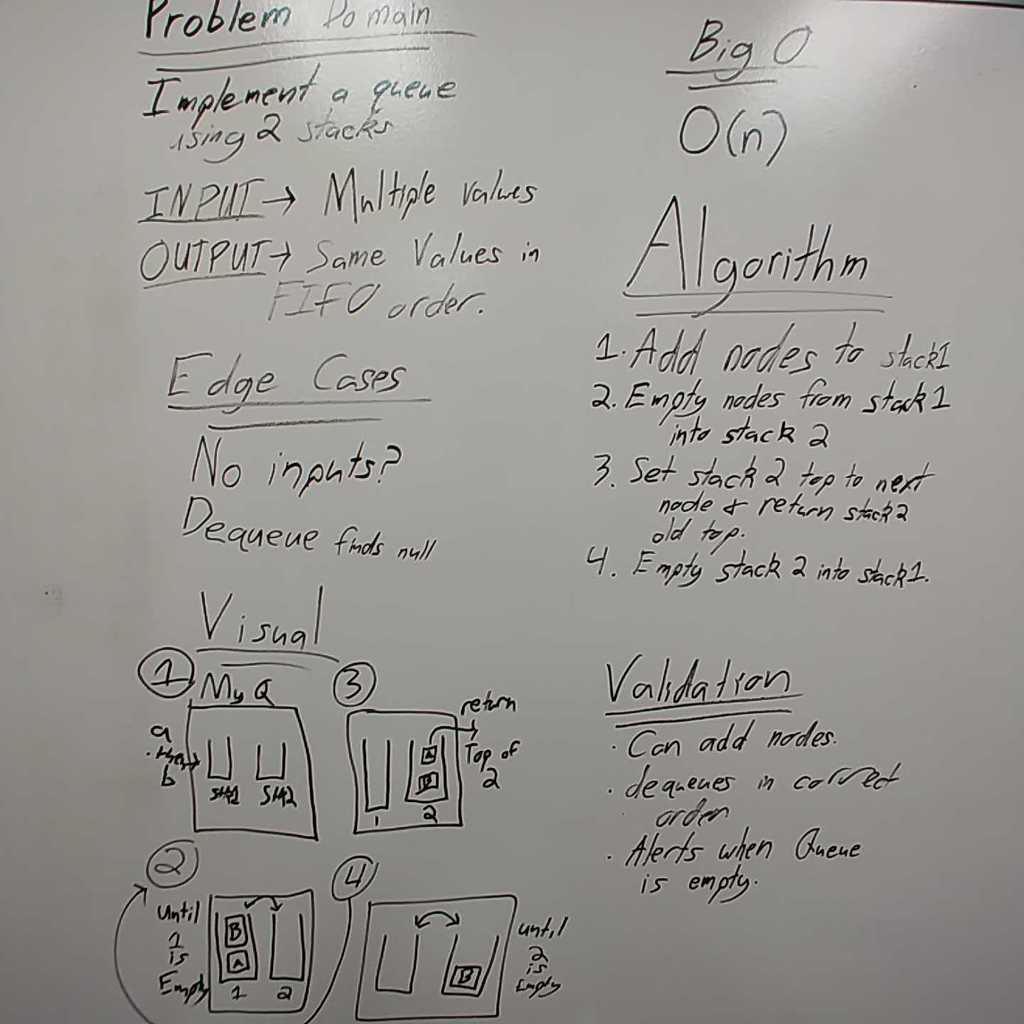 Problem Domain
Implement a queue
using 2 stacks
INPUT → Multiple values
OUTPUT → Same Values in
FIFO order.
Edge Cases
No inputs?
Dequeue finds null
Visual
1
MyQ
a
then
b
stk1 stk2
3
return
Top of
2
A
B
1 2
2
until
1
is
Empty
B
A
1 2
4
B
until
2
is
Empty
Big O
O(n)
Algorithm
1. Add nodes to stack1
2. Empty nodes from stack1
into stack 2
3. Set stack 2 top to next
node & return stack2
old top.
4. Empty stack 2 into stack1.
Validation
· Can add nodes.
· dequeues in correct
order
· Alerts when Queue
is empty.